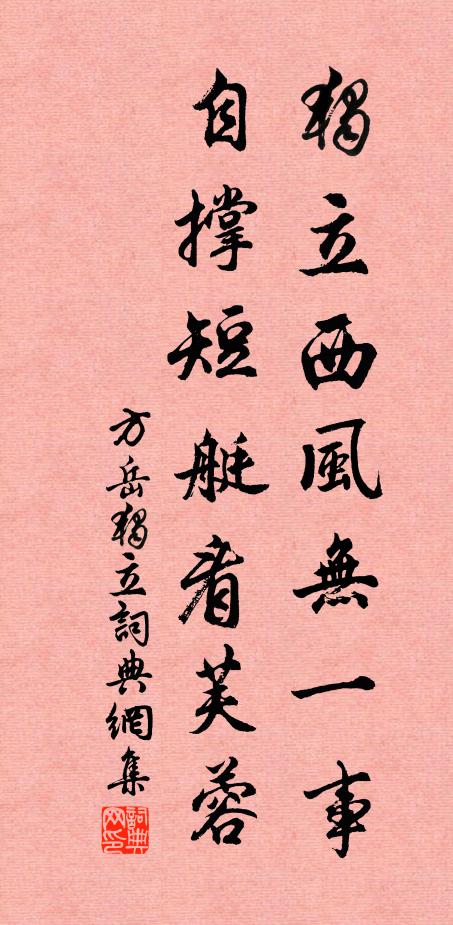 獨立西風無一事
自撐短艇看芙蓉
方岳獨立詞典網集
詞典
网印